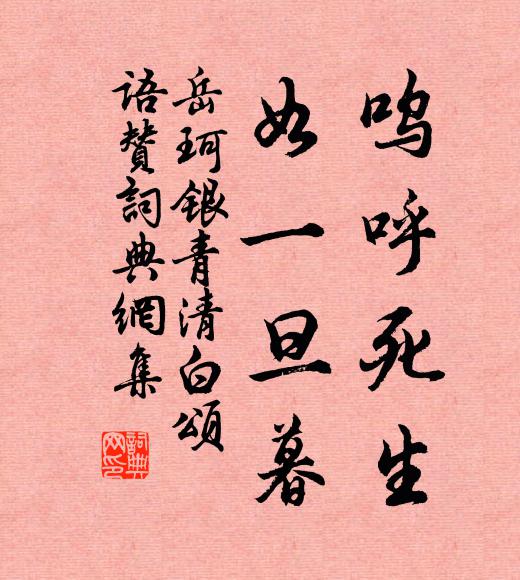 呜呼死生
如一旦暮
岳珂银青清白颂
语赞词典网集
词典网印